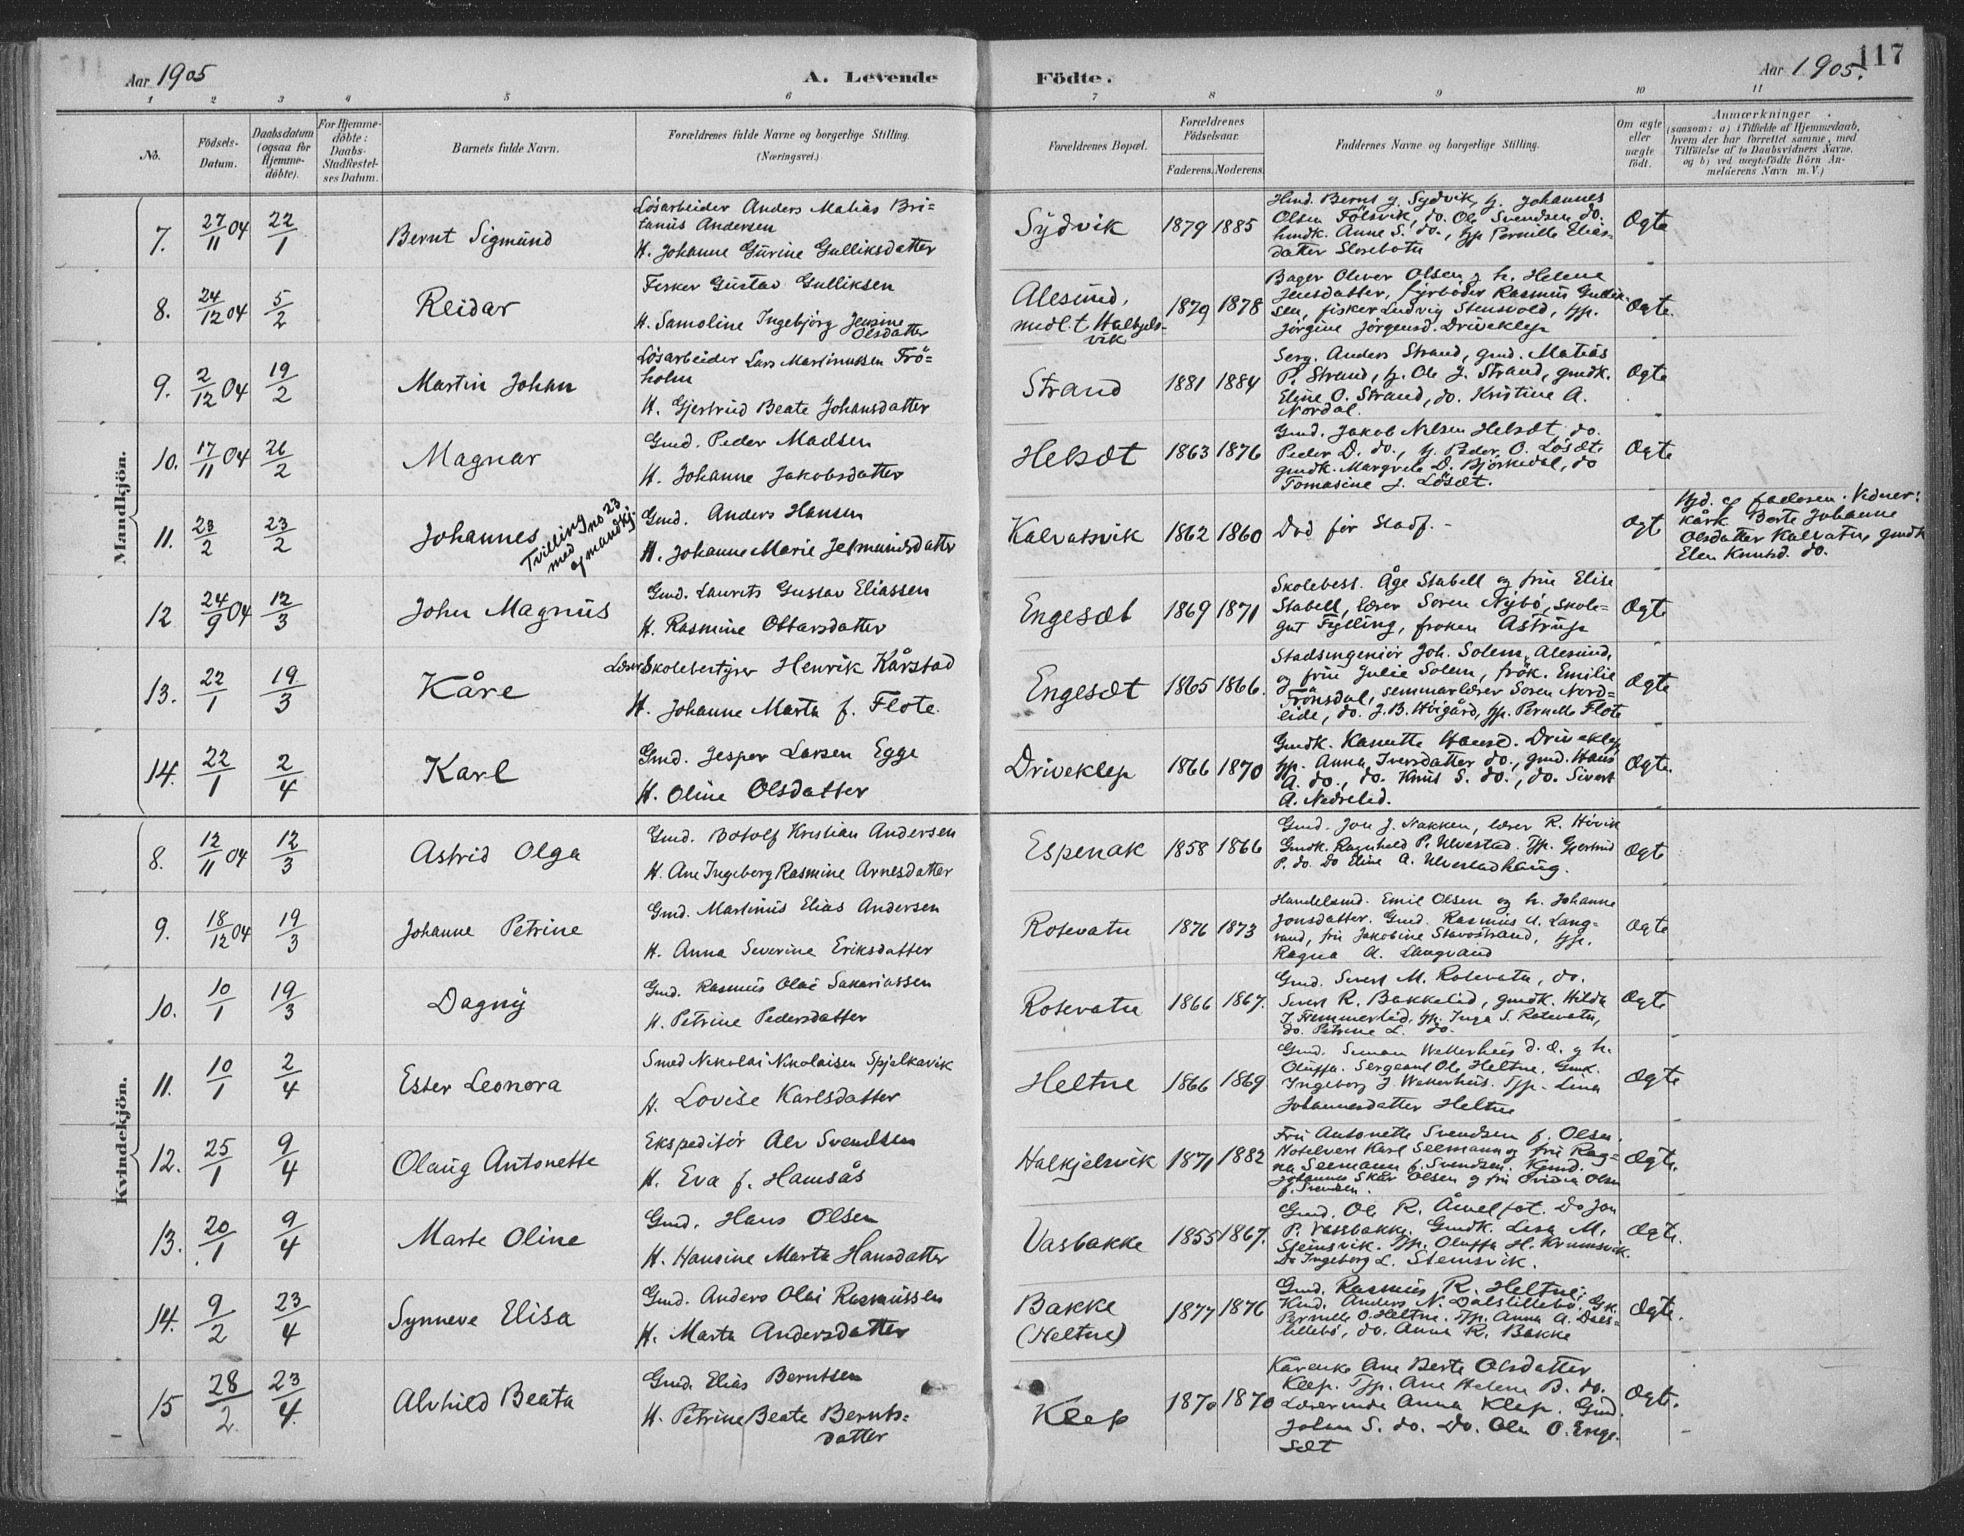 117
Aar 1905
A. Levende
Födte.
Aar 1905.
1 2 3 4 5 6 7 8 9 10 11
No.
Födsels-Datum.
Daabsdatum (ogsaa for Hjemmedöbte).
For Hjemmedöbte: Daabs-Stadfestelses Datum.
Barnets fulde Navn.
Forældrenes fulde Navne og borgerlige Stilling. (Næringsvei.)
Forældrenes Bopæl.
Forældrenes Födselsaar.
Faderens. Moderens.
Faddernes Navne og borgerlige Stilling.
Om ægte eller uægte födt.
Anmærkninger
(saasom: a) i Tilfælde af Hjemmedaab,
hvem der har forrettet samme, med
Tilföielse af to Daabsvidners Navne,
og b) ved uægtefödte Börn Anmelderens Navn m. V.)
Mandkjön.
7. 27/11 04 22/1 Bernt Sigmund
Lösarbeider Anders Matias Bri=
tanus Andersen
H. Johanne Gurine Gulliksdatter
Sydvik 1879 1885
Hmd. Bernt J. Sydvik, g. Johannes
Olsen Fölsvik, do. Ole Svendsen do.
hmdk. Anne S. do., Pernille Elias=
datter
Ægte
8. 24/12 04 5/2 Reidar
Fisker Gustav Gulliksen
H. Samoline Ingebjörg Jensine
Olsdatter
Alesund,
midl. t Halkjels-
vik
1879 1878
Bager Oliver Olsen g h. Helene
Jensdatter, fyrböder Rasmus Gullik-
sen, fisker Ludvig Stensvold,
Jörgine Jörgensd. Driveklep
Ægte.
9. 2/12 04 19/2 Martin Johan
Lösarbeider Lars Martinussen Frö=
holm
H. Gjertrud Beate Johansdatter
Strand 1881 1884
Serg. Anders Strand, gmd. Matias
P. Strand, g. Ole J. Strand, gmdk.
Eline O. Strand, do. Kristine A.
Nordal.
Ægte
10. 17/11 04 26/2 Magnar
Gmd. Peder Madsen
H. Johanne Jakobsdatter
Helsæt 1863 1876
Gmd. Jakob Nilsen Helsæt, do.
Peder D. do., g. Peder O. Lösæt
gmdk. Margrete D. Björkedal, do
Tomasine J. Lösæt.
Ægte
11. 23/2 23/2 Johannes
Tvilling
med no 23
af mandkj.
Gmd. Anders Hansen
H. Johanne Marie Jetmundsdatter
Kalvatsvik 1862 1860 Död för Stadf. -
Ægt
Hjd. af faderen. Vidner:
kårk Berte Johanne
Olsdatter Kalvatn, gmdk
Elen Knutsd. do.
12 24/9 04 12/3 John Magnus
Gmd. Laurits Gustav Eliassen
H. Rasmine Ottarsdatter
Engesæt 1869 1871
Skolebest. Åge Stabell og frue Elise
Stabell, lærer Soren Nybö, skole=
gut Fylling, froken Astrup
Ægte
13. 22/1 19/3 Kåre
Lærer Skolebestyrer Henrik Kårstad
H. Johanne Marta f. Flote.
Engesæt 1865 1866.
Stadsingeniör Joh. Solem, Alesund,
og frue Julie Solem, frök. Emilie
Frönsdal, semmarlærer Soren Nord=
eide, do. J. B. Höigård, Pernelle Flote
Ægte
14. 22/1 2/4 Karl
Gmd. Jesper Larsen Egge
H. Oline Olsdatter
Driveklep 1866 1870
Gmdk. Kanutte Hansd. Driveklep
Anna Iversdatter do., gmd. Hans
A. do., do. Knut S. do., do. Sivert
A. Nedrelid.
Ægte.
Kvindekjön.
8. 12/11 04 12/3 Astrid Olga
Gmd. Botolf Kristian Andersen
H. Ane Ingeborg Rasmine Arnesdatter
Espenak 1858 1866
Gmd. Jon J. Nakken, lærer R. Hövik
Gmdk. Ragnhild P. Ulvestad. Gjertrud
P. do. Do Eline A. Ulvestadhaug.
Ægte
9. 18/12 04 19/3 Johanne Petrine
Gmd. Martinus Elias Andersen
H. Anna Severine Eriksdatter
Rotevatn 1876 1873
Handelsmd. Emil Olsen og h. Johanne
Jonsdatter. Gmd. Rasmus A. Lang-
vand, fru Jakobine Stavostrand,
Ragna A. Langvand
Ægte
10. 10/1 19/3 Dagny
Gmd. Rasmus Olai Sakariassen
H. Petrine Pedersdatter
Rotevatn 1866 1867.
Gmd. Sivert M. Rotevatn, do.
Sivert R. Bakkelid, gmdk. Hilda
J. Hemmerlid, Inga S. Rotevatn,
do. Petrine L. do.
Ægte
11. 10/1 2/4 Ester Leonora
Smed Nikolai Nikolaisen Spjelkavik
H. Lovise Karlsdatter
Heltne 1866 1869
Gmd. Simon Wetterhus d. æ. g h.
Oluffa. Sergeant Ole Heltne. Gmd.
Ingeborg J. Wetterhus. Lina
Johannesdatter Heltne
Ægte
12. 25/1 9/4 Olaug Antonette
Ekspeditör Alv Svendsen
H. Eva f. Hamsås
Halkjelsvik 1871 1882
Fru Antonette Svendsen f. Olsen.
Hotelvert Karl Seemann og fru Rag=
na Seemann f. Svendsen. Kjmd.
Johannes Skår Olsen g fru Ovidia Olsen
f. Svendsen.
Ægte.
13. 20/1 9/4 Marte Oline
Gmd. Hans Olsen
H. Hansine Marta Hansdatter
Vasbakke 1855 1867.
Gmd. Ole R. Åmelfot. Do Jon
P. Vassbakke. Gmdk. Lisa M.
Steinsvik. Oluffa H. Krumsvik.
Do Ingeborg L. Steinsvik.
Ægte.
14. 9/2 23/4 Synneve Elisa
Gmd. Anders Olai Rasmussen
H. Marta Andersdatter
Bakke
(Heltne)
1877 1876
Gmd. Rasmus R. Heltne.
Kmd. Anders N. Dalslillebö, Gk.
Pernille O. Heltne. Anna A. Dals-
lillebö, do. Anna R. Bakke
Ægte.
15 28/2 23/4 Alvhild Beata
Gmd. Elias Berntsen
H. Petrine Beate Bernts=
datter
Klep 1870 1870
Kårenke Ane Berte Olsdatter
Klep. Ane Helene B. do.
Lærerinde Anna Klep. Gmd.
Johan S. do. Do. Ole O. Enge-
sæt
Ægte.